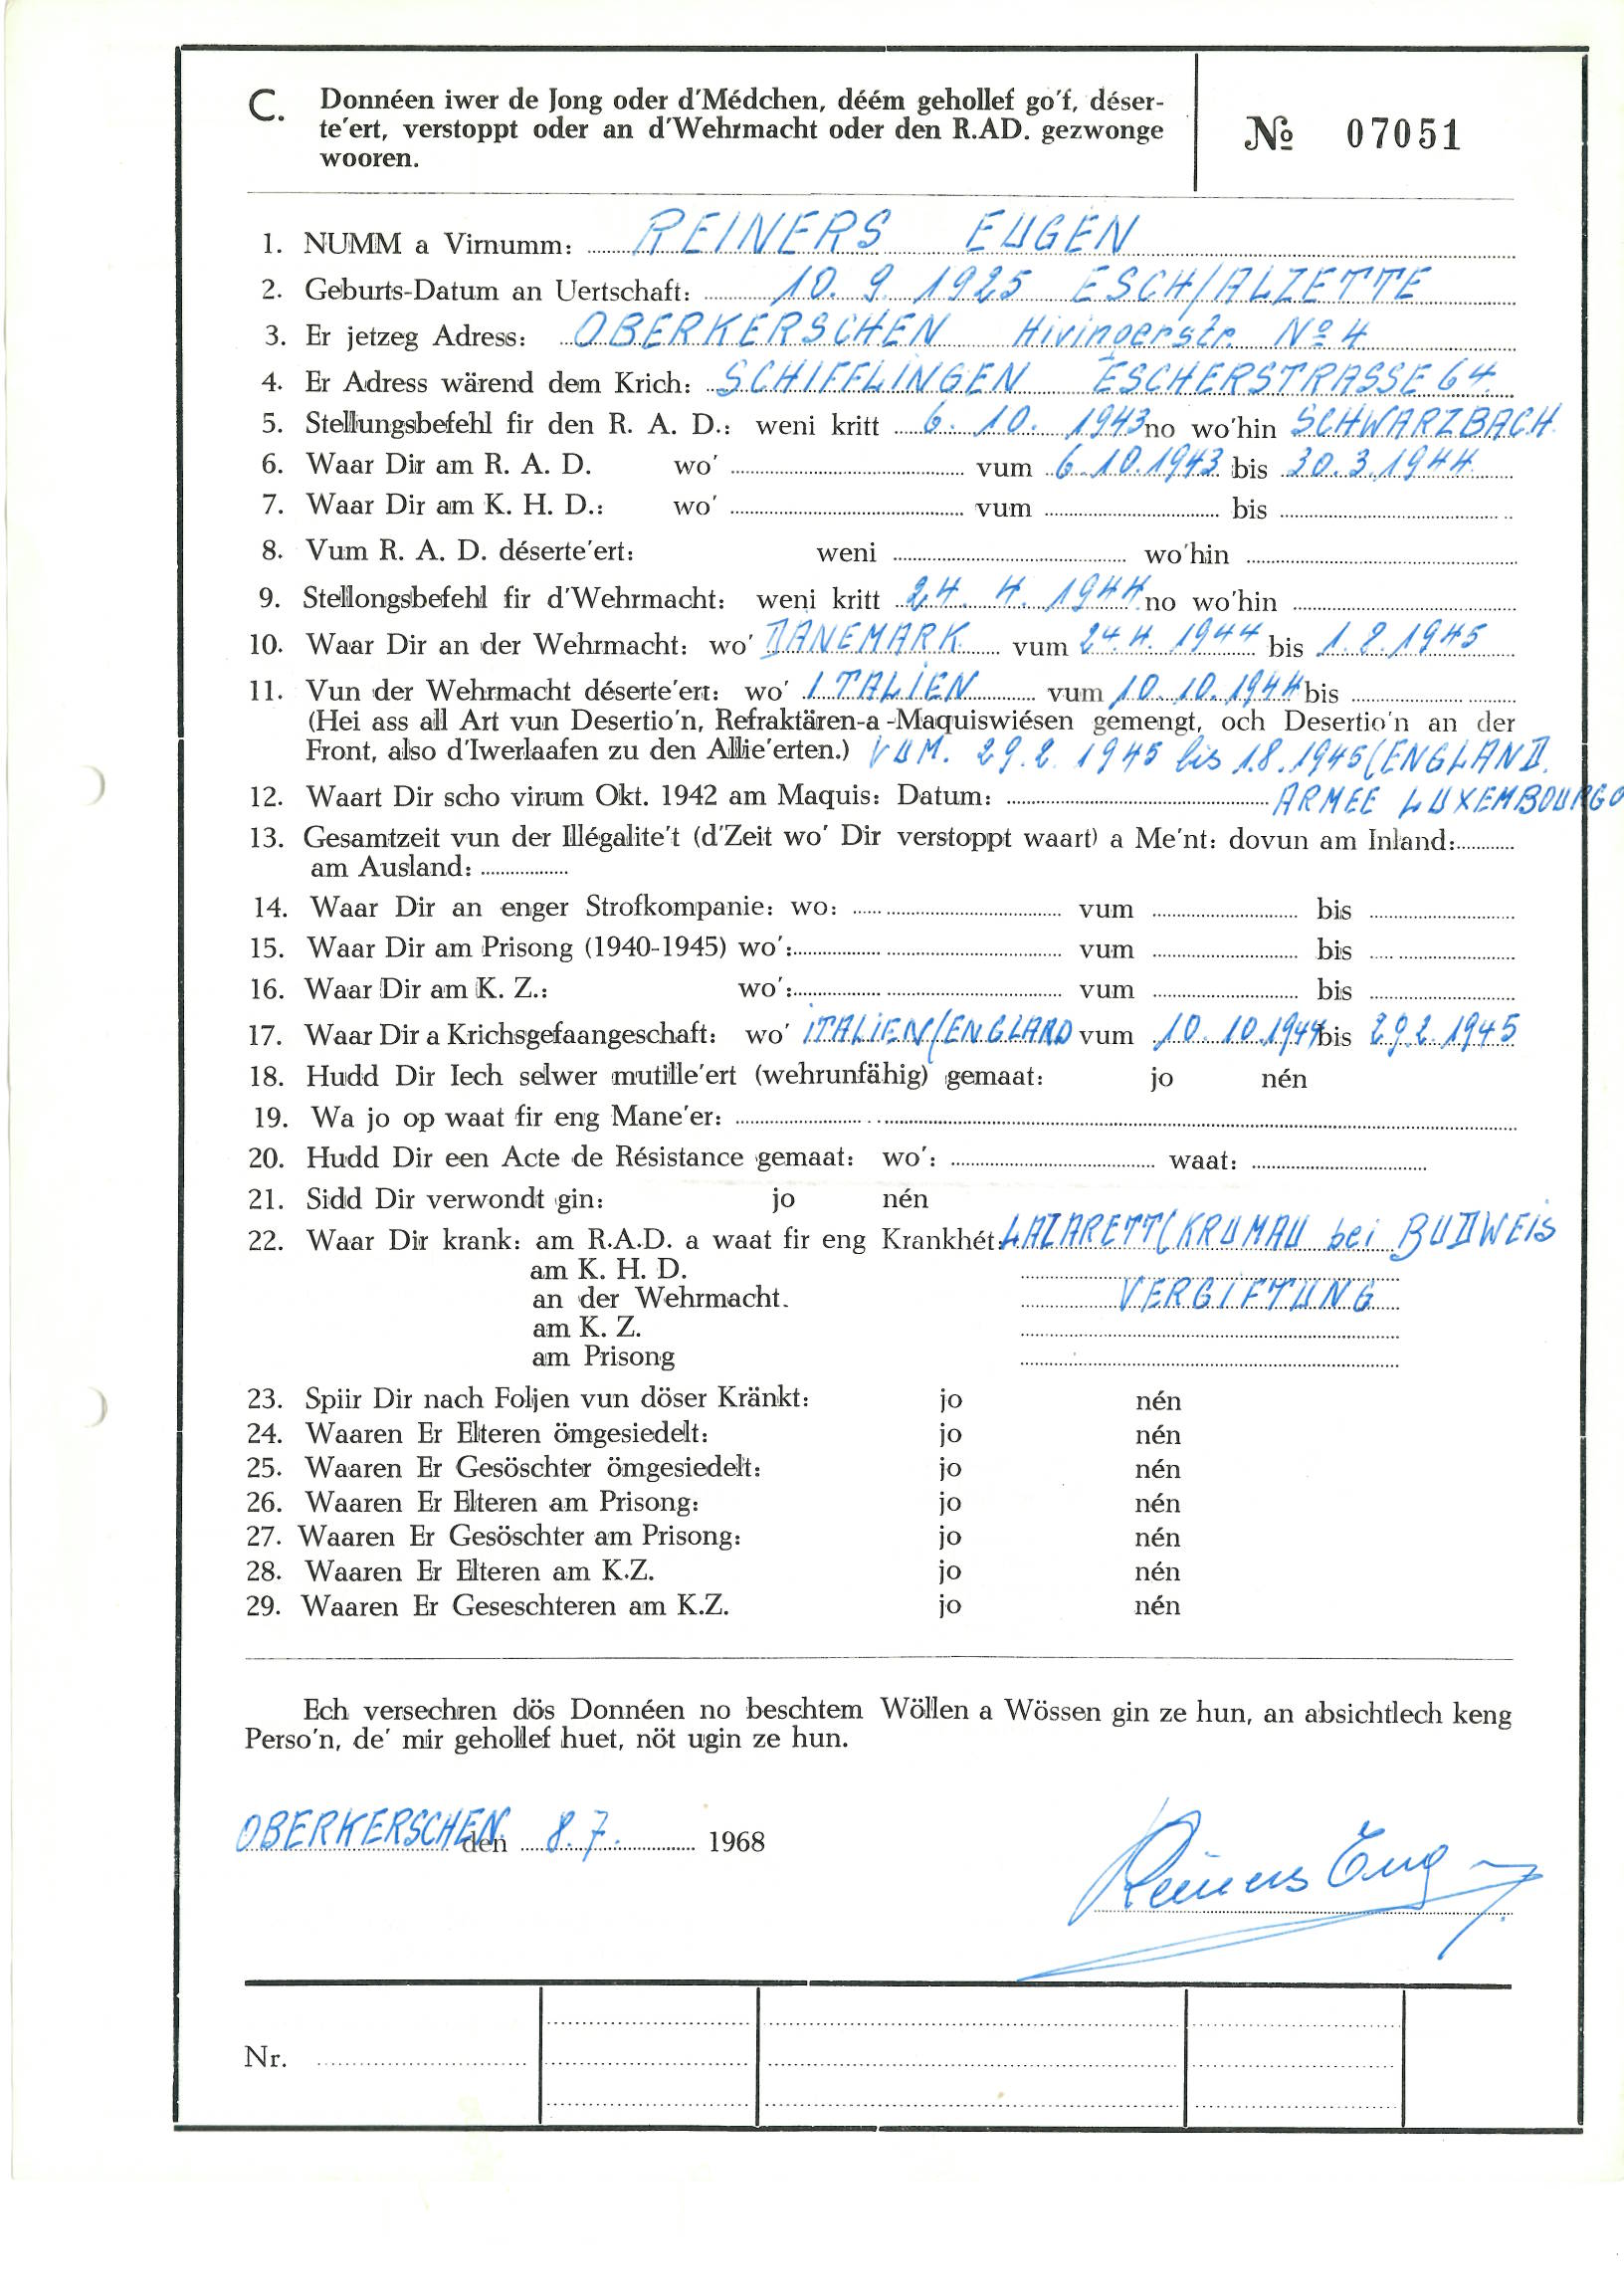 C. Donnéen iwer de Jong oder d'Médchen, déém gehollef go'f, déser-
te'ert, verstoppt oder an d'Wehrmacht oder den R.AD. gezwonge
wooren.
№ 07051
1. NUMM a Virnumm: REINERS EUGEN
2. Geburts-Datum an Uertschaft: 10. 9. 1925 ESCH/ALZETTE
3. Er jetzeg Adress: OBERKERSCHEN Hivingerstr. No 4
4. Er Adress wärend dem Krich: SCHIFFLINGEN ESCHERSTRASSE 64
5. Stellungsbefehl fir den R. A. D.: weni kritt 6. 10. 1943 no wo'hin SCHWARZBACH
6. Waar Dir am R. A. D. wo' vum 6.10.1943 bis 30.3.1944
7. Waar Dir am K. H. D.: wo' vum bis
8. Vum R. A. D. déserte'ert: weni wo'hin
9. Stellongsbefehl fir d'Wehrmacht: weni kritt 24. 4. 1944 no wo'hin
10. Waar Dir an der Wehrmacht: wo' DÄNEMARK vum 24.4. 1944 bis 1.8.1945
11. Vun der Wehrmacht déserte'ert: wo' ITALIEN vum 10.10.1944 bis
(Hei ass all Art vun Desertio'n, Refraktären-a-Maquiswiésen gemengt, och Desertio'n an der
Front, also d'Iwerlaafen zu den Allie'erten.) VUM. 29.2. 1945 bis 1.8.1945 (ENGLAND.
12. Waart Dir scho virum Okt. 1942 am Maquis: Datum: ARMEE LUXEMBOURGO
13. Gesamtzeit vun der Illégalite't (d'Zeit wo' Dir verstoppt waart) a Me'nt: dovun am Inland:
am Ausland:
14. Waar Dir an enger Strofkompanie: wo: vum bis
15. Waar Dir am Prisong (1940-1945) wo': vum bis
16. Waar Dir am K. Z.: wo': vum bis
17. Waar Dir a Krichsgefaangeschaft: wo' ITALIEN/ENGLAND vum 10. 10.1944 bis 29.2.1945
18. Hudd Dir Iech selwer mutille'ert (wehrunfähig) gemaat: jo nén
19. Wa jo op waat fir eng Mane'er:
20. Hudd Dir een Acte de Résistance gemaat: wo': waat:
21. Sidd Dir verwondt gin: jo nén
22. Waar Dir krank: am R.A.D. a waat fir eng Krankhét: LAZARETT (KRUMAU bei BUDWEIS
am K. H. D.
an der Wehrmacht. VERGIFTUNG
am K. Z.
am Prisong
23. Spiir Dir nach Foljen vun döser Kränkt: jo nén
24. Waaren Er Elteren ömgesiedelt: jo nén
25. Waaren Er Gesöschter ömgesiedelt: jo nén
26. Waaren Er Elteren am Prisong: jo nén
27. Waaren Er Gesöschter am Prisong: jo nén
28. Waaren Er Elteren am K.Z. jo nén
29. Waaren Er Geseschteren am K.Z. jo nén
Ech versechren dös Donnéen no beschtem Wöllen a Wössen gin ze hun, an absichtlech keng
Perso'n, de' mir gehollef huet, nöt ugin ze hun.
OBERKERSCHEN den 8. 7. 1968
Reiners Eug
Nr.